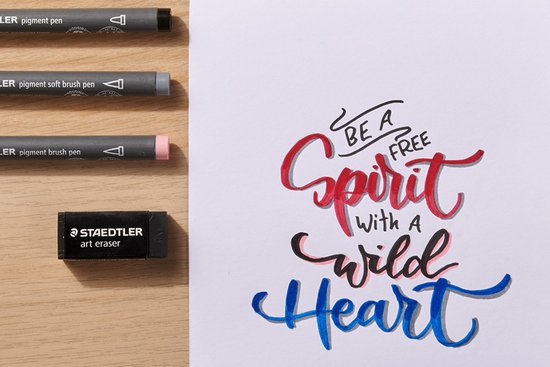 LER pigment pen
LER pigment soft brush pen
LER pigment brush pen
STAEDTLER
art eraser
BE A
FREE
Spirit
with A
wild
Heart